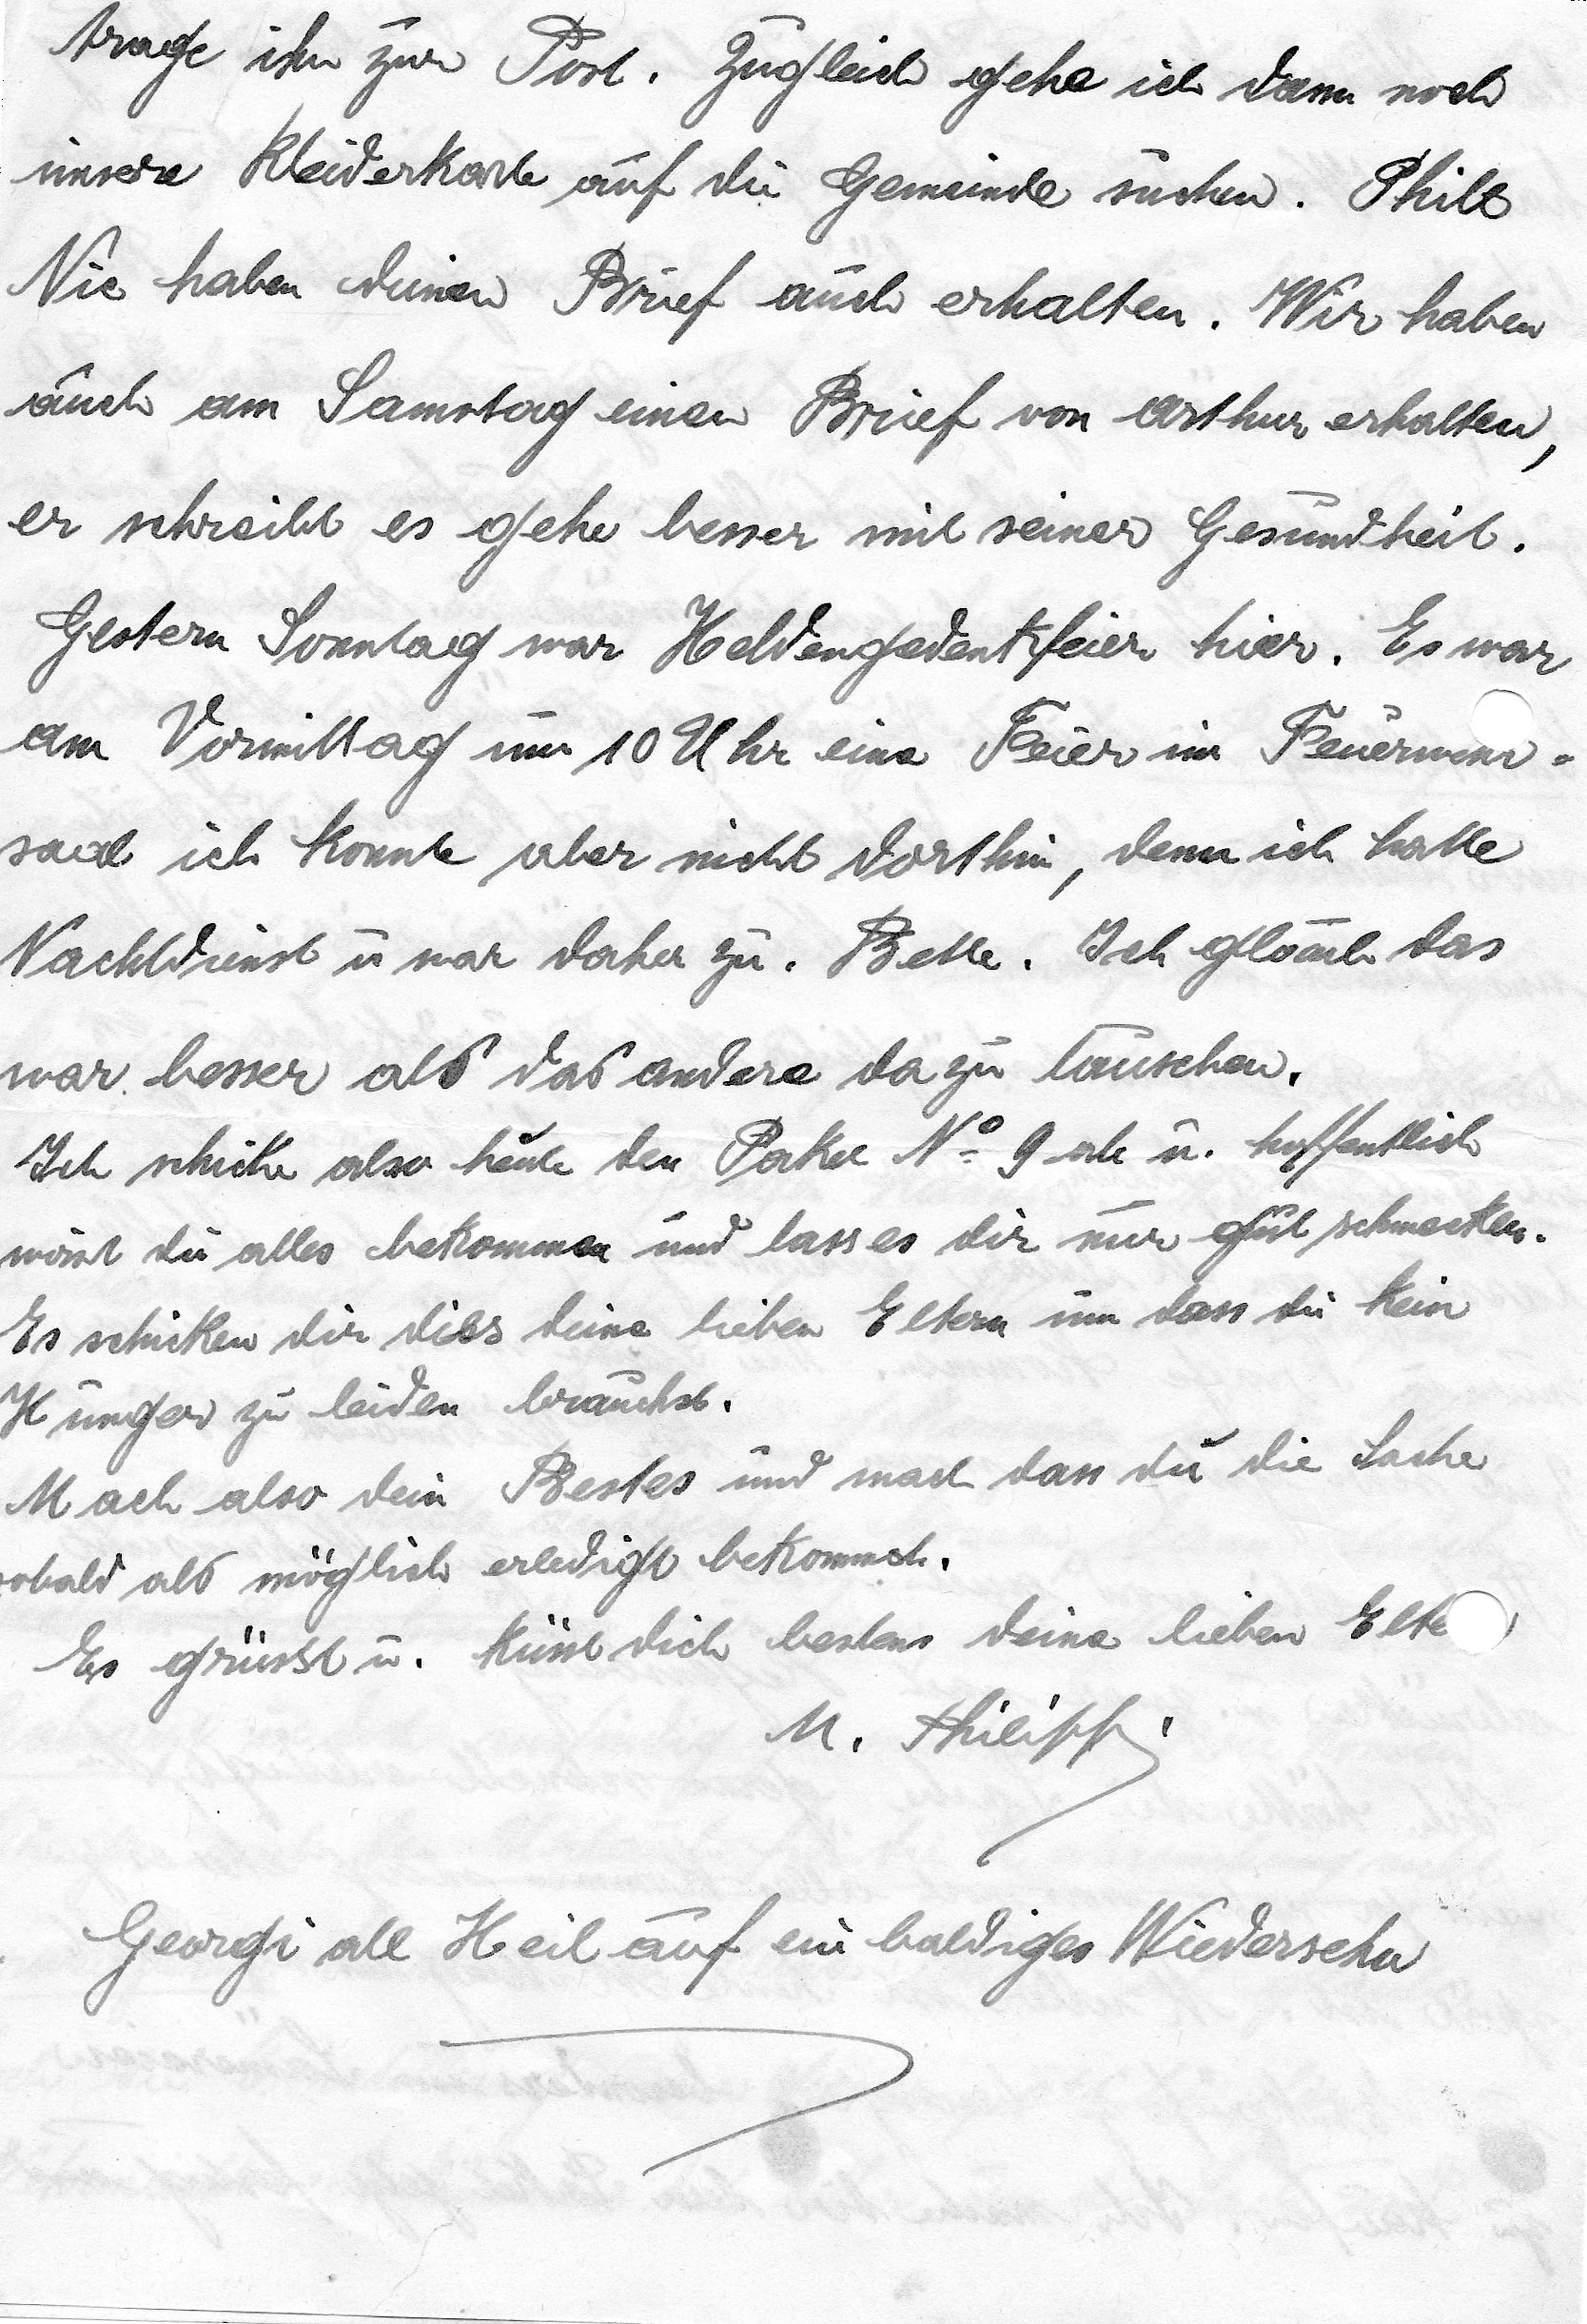 trage ihn zur Post. Zugleich gehe ich dann noch
unsere Kleiderkarte auf die Gemeinde suchen.
Nic haben deinen Brief auch erhalten. Wir haben
auch am Samstag einen Brief von Arthur erhalten,
er schreibt es gehe besser mit seiner Gesundheit.
Gestern Sonntag war Heldengedenkfeier hier. Es war
am Vormittag um 10 Uhr eine Feier im Feuerwehr-
saal ich konnte aber nicht dorthin, denn ich hatte
Nachtdienst u war daher zu. Bette. Ich glaub das
war besser als das andere da zu lauschen.
Ich schicke also heute den Paket No 9 ab u. hoffentlich
wirst du alles bekommen und lass es dir nur gut schmecken.
Es schicken dir dies deine lieben Eltern um dass du kein
Hunger zu leiden brauchst.
Mach also dein Bestes und mach dass du die Sache
sobald als möglich erledigt bekommst.
Es grüsst u. küsst dich bestens deine lieben Elte
M. Philippi
Georgi all Heil auf ein baldiges Wiedersehn